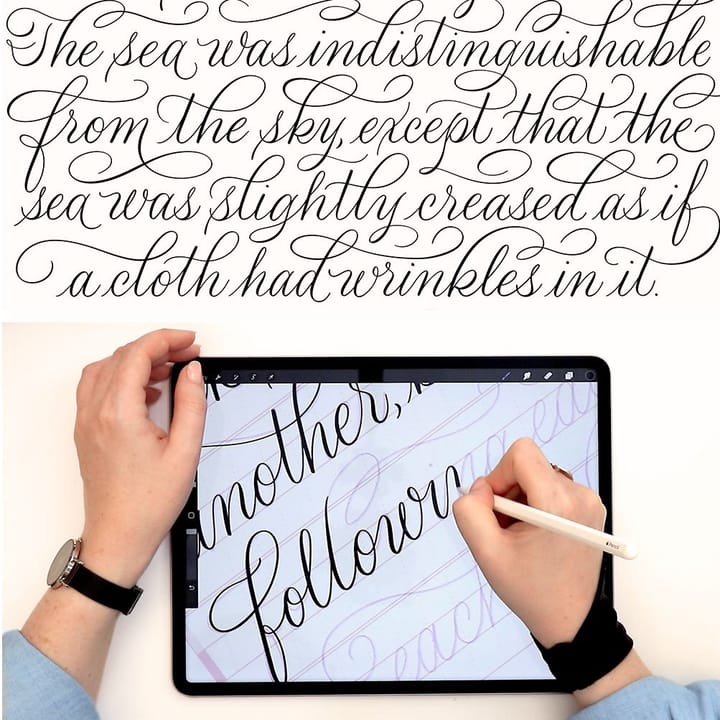 The sea was indistinguishable
from the sky, except that the
sea was slightly creased as if
a cloth had wrinkles in it.
another,
following
each